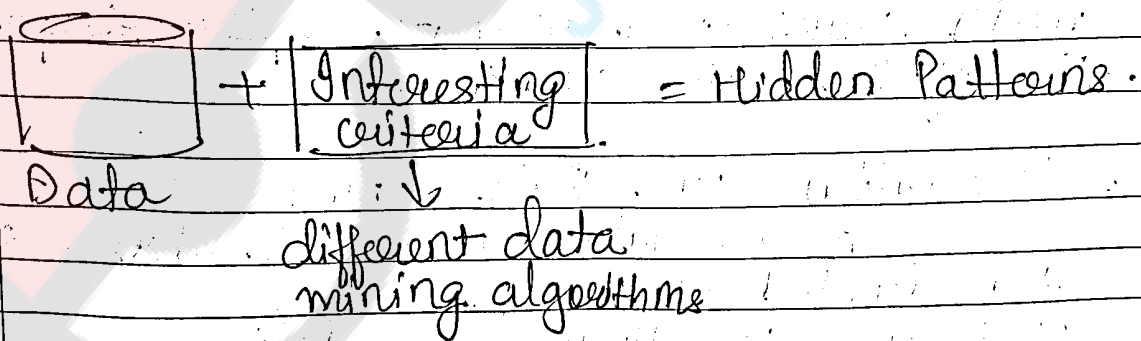 + Interesting criteria = Hidden Patterns.
Data ↓
different data
mining algorithms